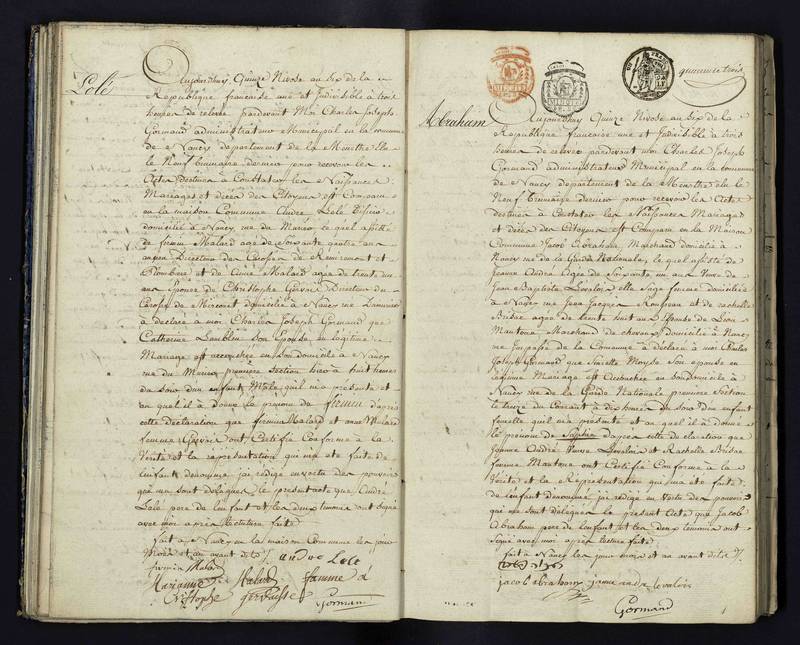 Lolé
Aujourd'huy Quinze Nivose an Six de la
Republique française une et Indivisible à trois
heures de relevée pardevant Moi Charles Joseph
Gormand administrateur Municipal en la commune
de Nancy departement de la Meurthe elu
le Neuf Brumaire dernier pour recevoir les
Actes destinés a Constater les Naissances
Mariages et décès des Citoyens est Comparu
en la maison Commune André Lolé
domicilié à Nancy rue du Mureco lequel assisté
de firmin Malard agé de Soixante quatre ans
ancien Directeur des Carosses de Remiremont et
Plombiere et de Anne Malard agée de trente
ans Epouse de Christophe Directeur du
Carosse de Mirecourt domiciliée à Nancy rue
à déclaré à moi Charles Joseph Gormand que
Catherine son Epouse en légitime
Mariage est accouchée en son domicile a Nancy
rue du Mureco premiere Section hier à huit heures
du soir d'un enfant Mâle qu'il m'a presenté et
au quel il à donné le prénom de firmin d'après
cette declaration que firmin Malard et anne Malard
femme ont Certifié Conforme a la
Verité et la representation qui m'a eté faite de
l'enfant denommé j'ai rédigé en vertu des pouvoirs
qui me sont délégués le present acte que André
Lolé pere de l'enfant et les deux temoins ont signé
avec moi après lecture faite
fait à Nancy en la maison Commune les jour
Mois et an avant dits
andré Lolé
firmin Malard
Marianne Malard famme d
Cristophe
Gormand
quarante trois
Abraham
Aujourd'huy Quinze Nivose an Six de la
Republique francoise une et Indivisible à trois
heures de relevée pardevant moi Charles Joseph
Gormand administrateur Municipal en la commune
de Nancy departement de la Meurthe elu le
Neuf Brumaire dernier pour recevoir les Actes
destinés à Constater les Naissances Mariages
et décès des Citoyens est Comparu en la Maison
Commune Jacob Abraham, Marchand domicilié à
Nancy rue de la Garde Nationale, le quel assisté de
Jeanne André Agée de Soixante un ans Veuve de
Jean Baptiste Levalois elle Sage femme domiciliée
à Nancy rue Jean Jacques Rousseau et de rachelle
Brisac agée de trente huit ans Epouse de Leon
Mantone Marchand de chevaux domiciliée à Nancy
rue Impasse de la Commune à déclaré à moi Charles
Joseph Gormand que Moyse Son epouse en
légitime Mariage est accouchée en son domicile à
Nancy rue de la Garde Nationale premiere Section
le treize du Courant à dix heures du soir d'un enfant
femelle qu'il m'a presenté et au quel il à donné
le prénom de Sophie d'apres cette declaration que
jeanne André Veuve Levalois et Rachelle Brisac
femme Mantone ont Certifié Conforme à la
Verité et la Representation qui m'a eté faite
de l'enfant denommé j'ai rédigé en Vertu des pouvoirs
qui me sont délégués le present Acte que Jacob
Abraham pere de l'enfant et les deux temoins ont
Signé avec moi apres lecture faite
fait à Nancy les jour mois et an avant dits
jacob abraham janne andre levalois
Gormand